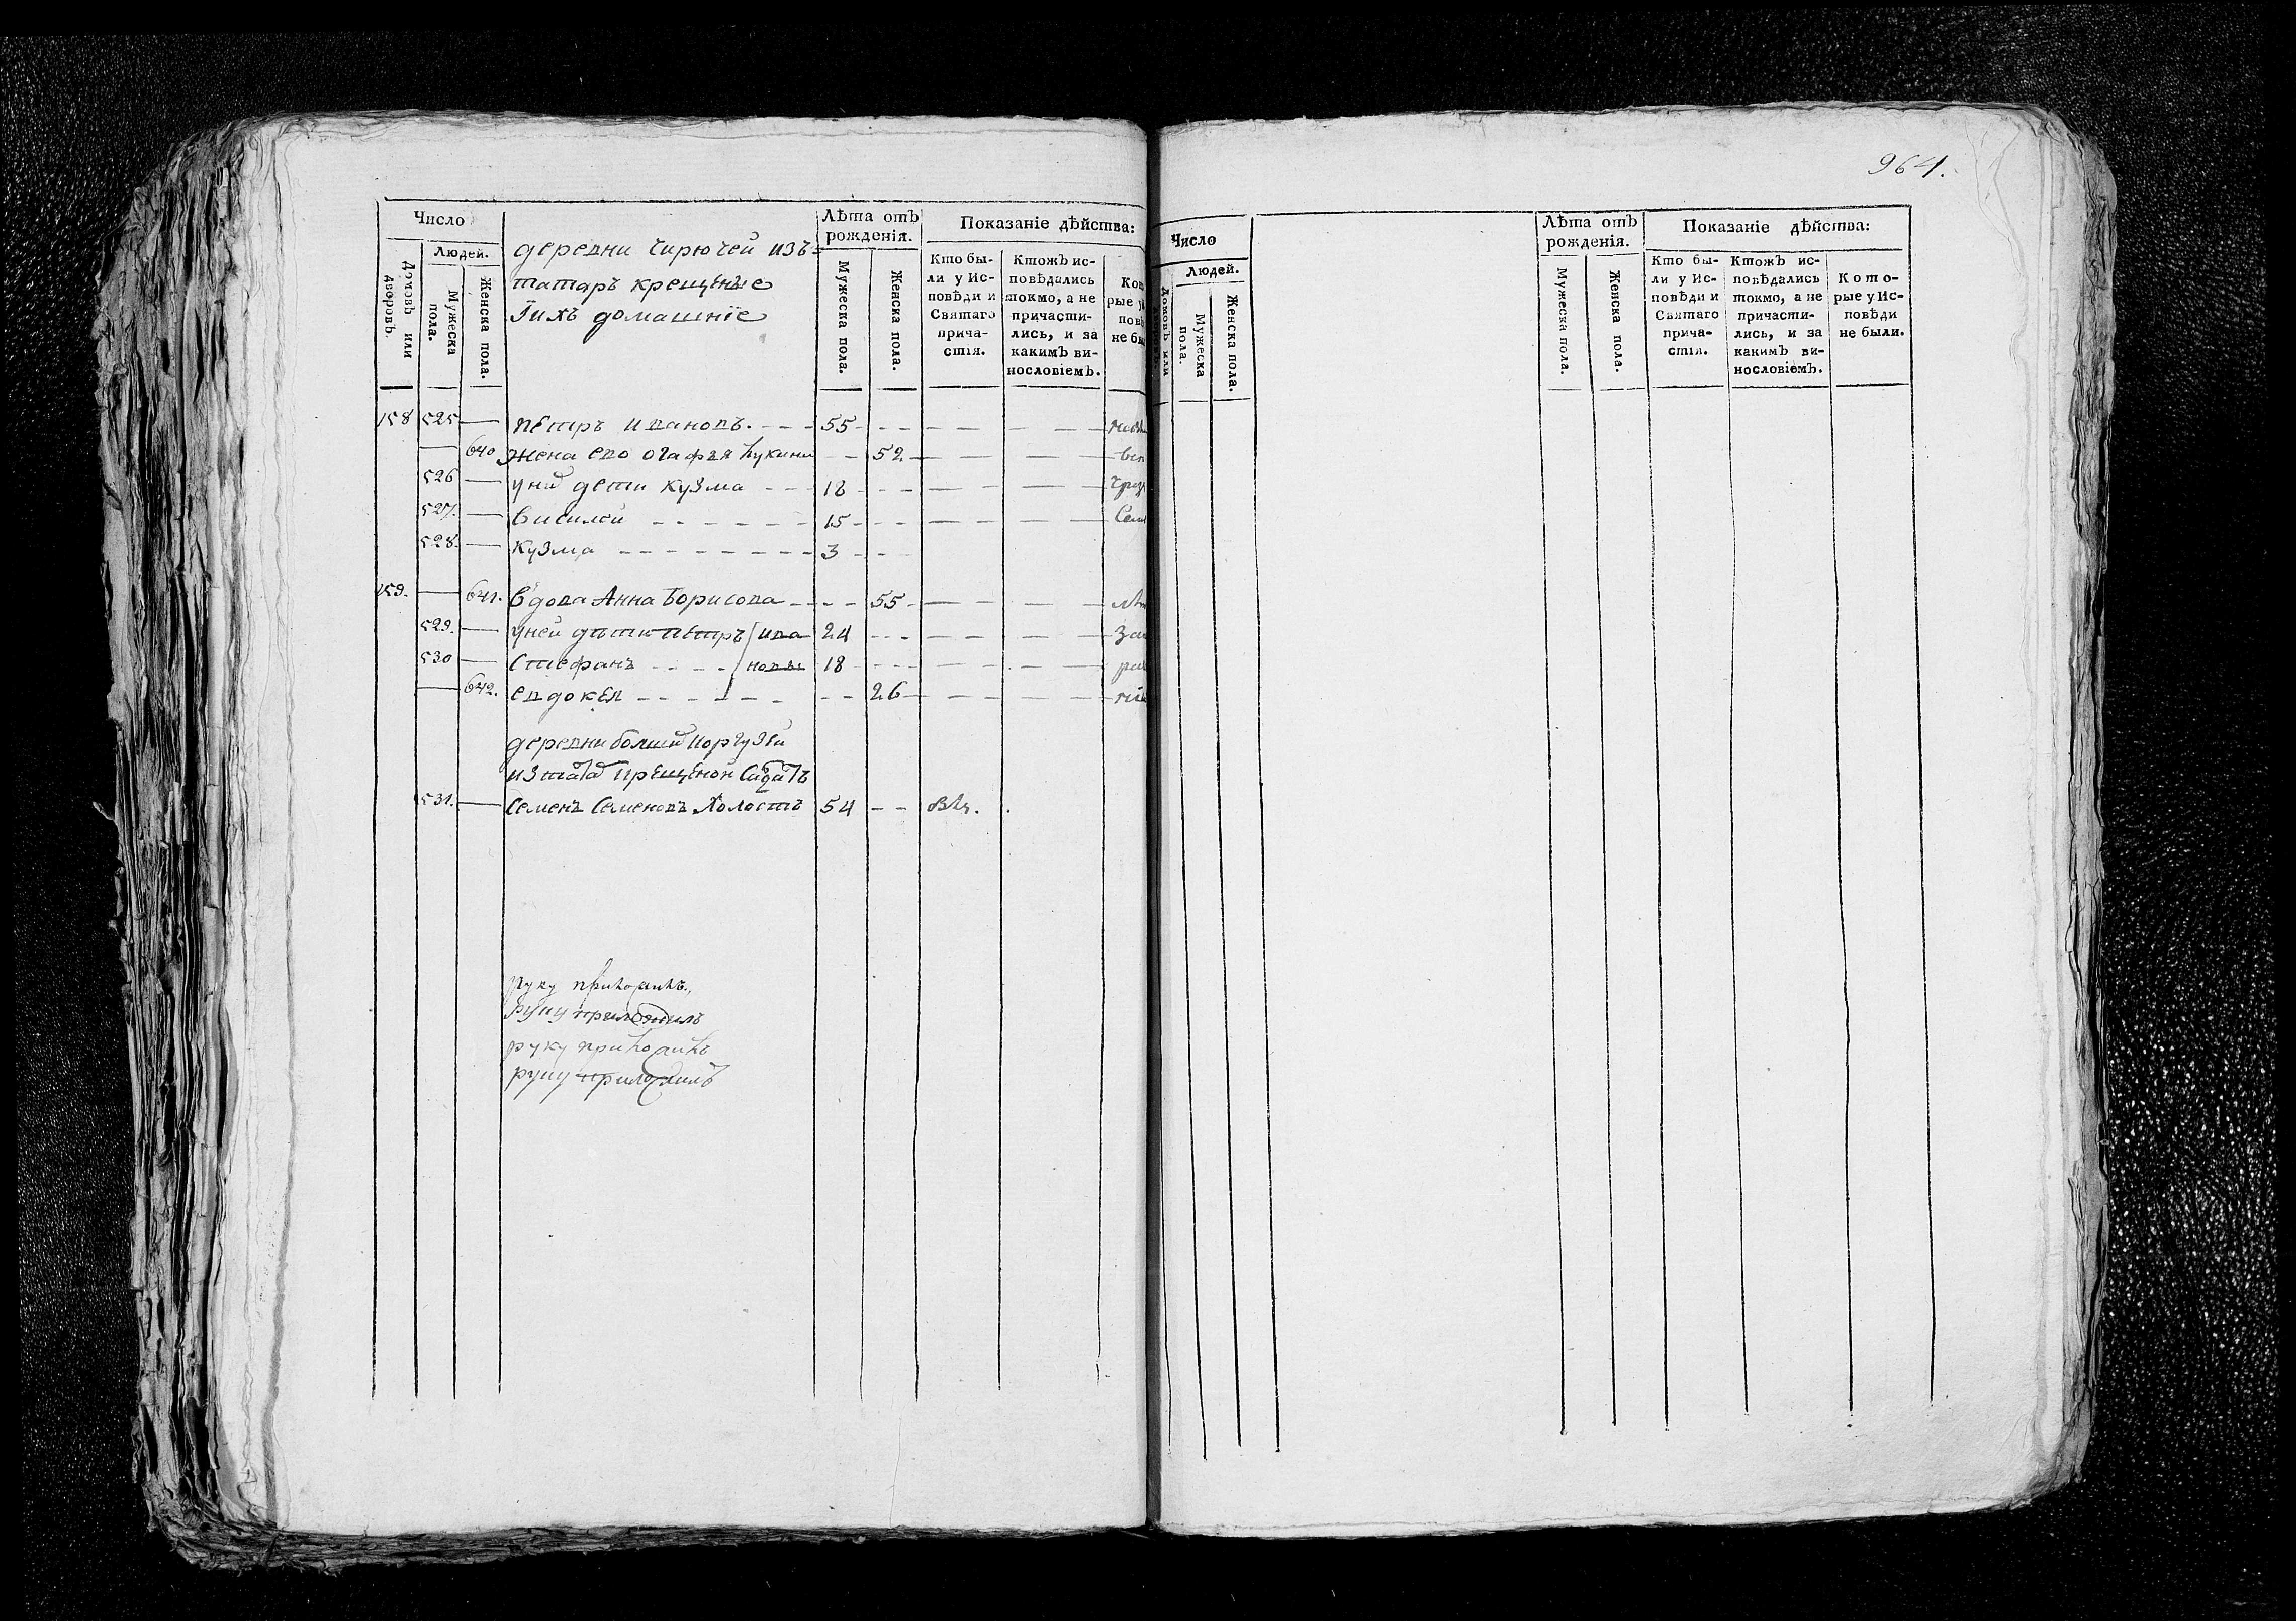 Число
Людей.
Домовъ или дворовъ.
Мужеска пола.
Женска пола.
деревни Чирючей изъ
татаръ крещеные
Їихъ домашнїе
Лѣта отъ рожденія.
Мужеска пола.
Женска пола.
Показаніе дѣйства:
Кто бы-
ли у Ис-
повѣди и
Святаго
прича-
стія.
Ктожъ ис-
повѣдались
токмо, а не
причасти-
лись, и за
какимъ ви-
нословіемъ.
158 525 — петръ ивановъ. 55
— 640 жена ево огафья 52
526 — дети кузма 18
527. — Василей 15
528. — кузма 3
159. — 641. вдова Анна Борисова 55
529. — уней дѣти петръ ива 24
530 — Стефанъ новы 18
— 642. евдокея 26
деревни
из
531. — Семенъ Семеновъ Холостъ 54
руку приложилъ
руку приложилъ
руку приложилъ
руку приложилъ
964.
Число
Людей.
Домовъ или
Мужеска пола.
Женска пола.
Лѣта отъ рожденія.
Мужеска пола.
Женска пола.
Показаніе дѣйства:
Кто бы-
ли у Ис-
повѣди и
Святаго
прича-
стія.
Ктожъ ис-
повѣдались
токмо, а не
причасти-
лись, и за
какимъ ви-
нословіемъ.
Кото-
рые у Ис-
повѣди
не были.